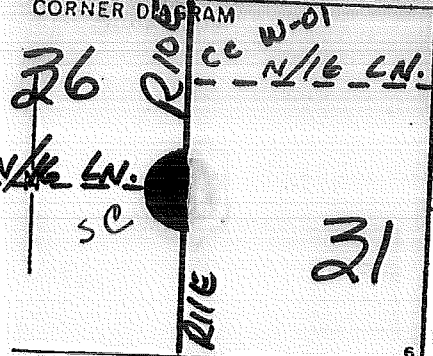 CORNER DIAGRAM
R10E
CC W-01
N/16 LN.
36
N/16 LN.
SC
31
R11E
6